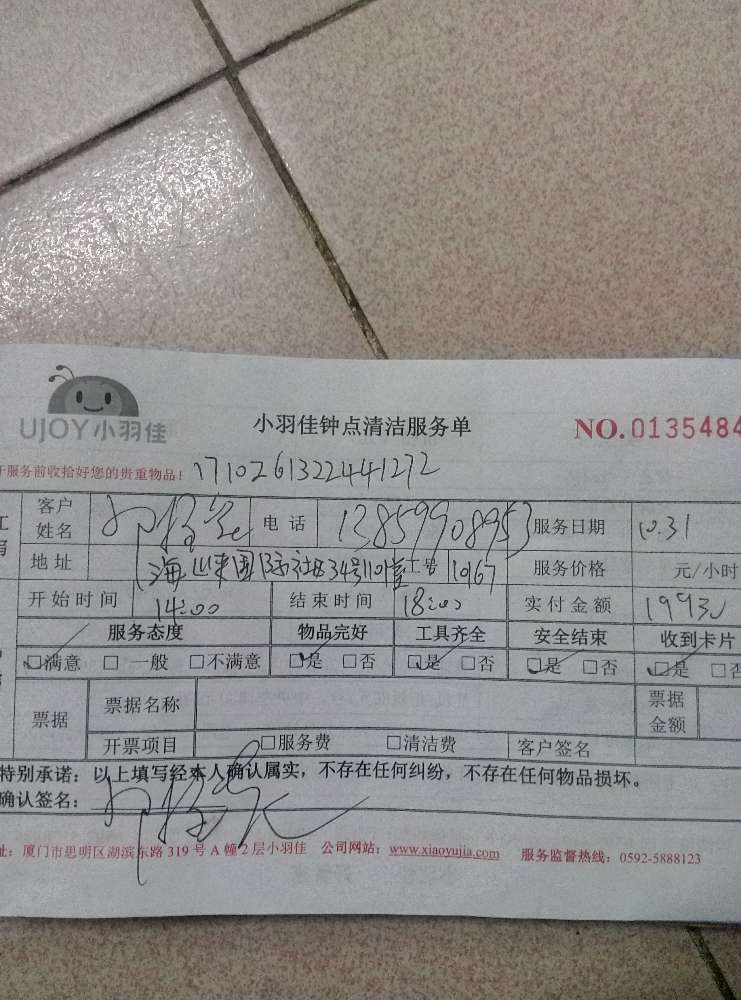 UJOY小羽佳
小羽佳钟点清洁服务单
NO.0135484
服务前收拾好您的贵重物品! 1710261322441272
客户姓名 电话 13859908953 服务日期 10.31
地址 海 国际社区34号110 工号 1067 服务价格 元/小时
开始时间 14:00 结束时间 18:00 实付金额
服务态度 物品完好 工具齐全 安全结束 收到卡片
☑满意 □一般 □不满意 ☑是 □否 ☑是 □否 ☑是 □否 ☑是 □否
票据 票据名称 票据金额
开票项目 □服务费 □清洁费 客户签名
特别承诺:以上填写经本人确认属实,不存在任何纠纷,不存在任何物品损坏。
确认签名:
址:厦门市思明区湖滨东路 319 号 A 幢 2 层小羽佳 公司网站:www.xiaoyujia.com 服务监督热线:0592-5888123